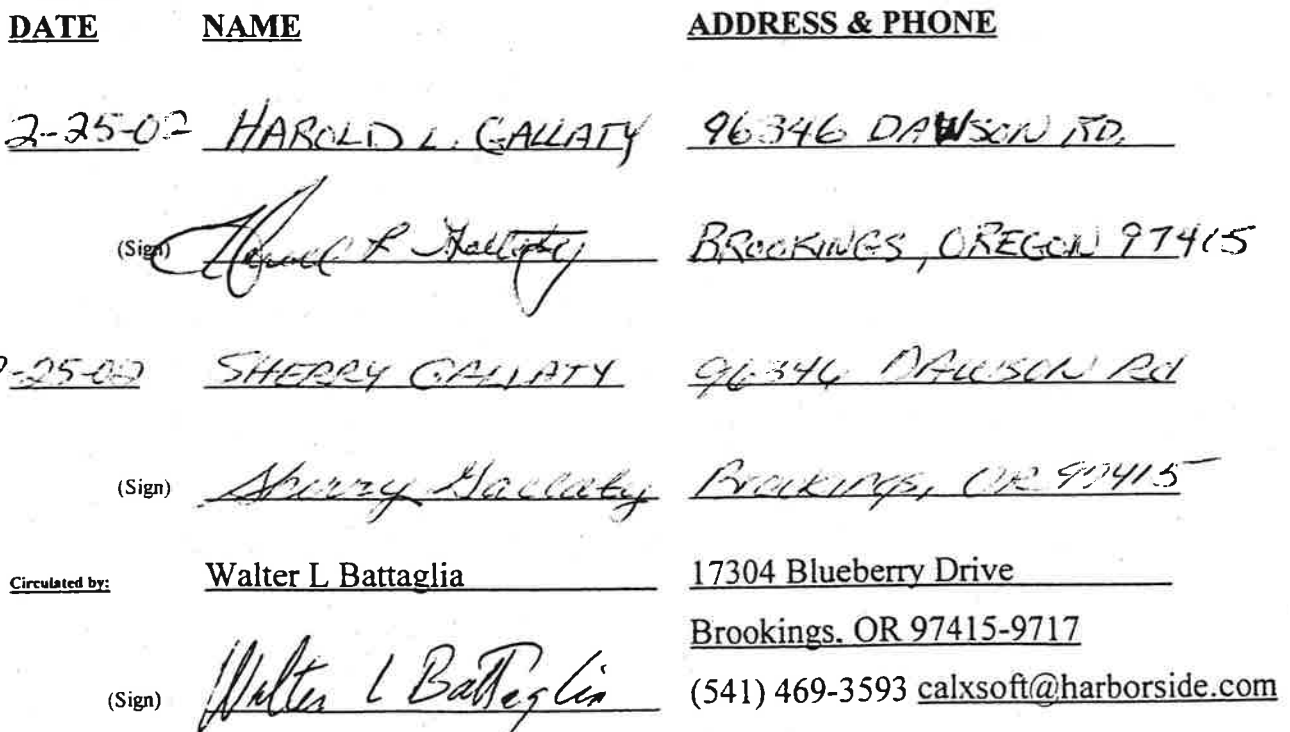 DATE NAME ADDRESS & PHONE
2-25-02 HAROLD L. GALLATY 96346 DAWSON RD.
(Sign) Harold L Gallaty BROOKINGS, OREGON 97415
2-25-02 SHERRY GALLATY 96346 DAWSON Rd
(Sign) Sherry Gallaty Brookings, OR 97415
Circulated by: Walter L Battaglia 17304 Blueberry Drive
Brookings. OR 97415-9717
(Sign) Walter L Battaglia (541) 469-3593 calxsoft@harborside.com